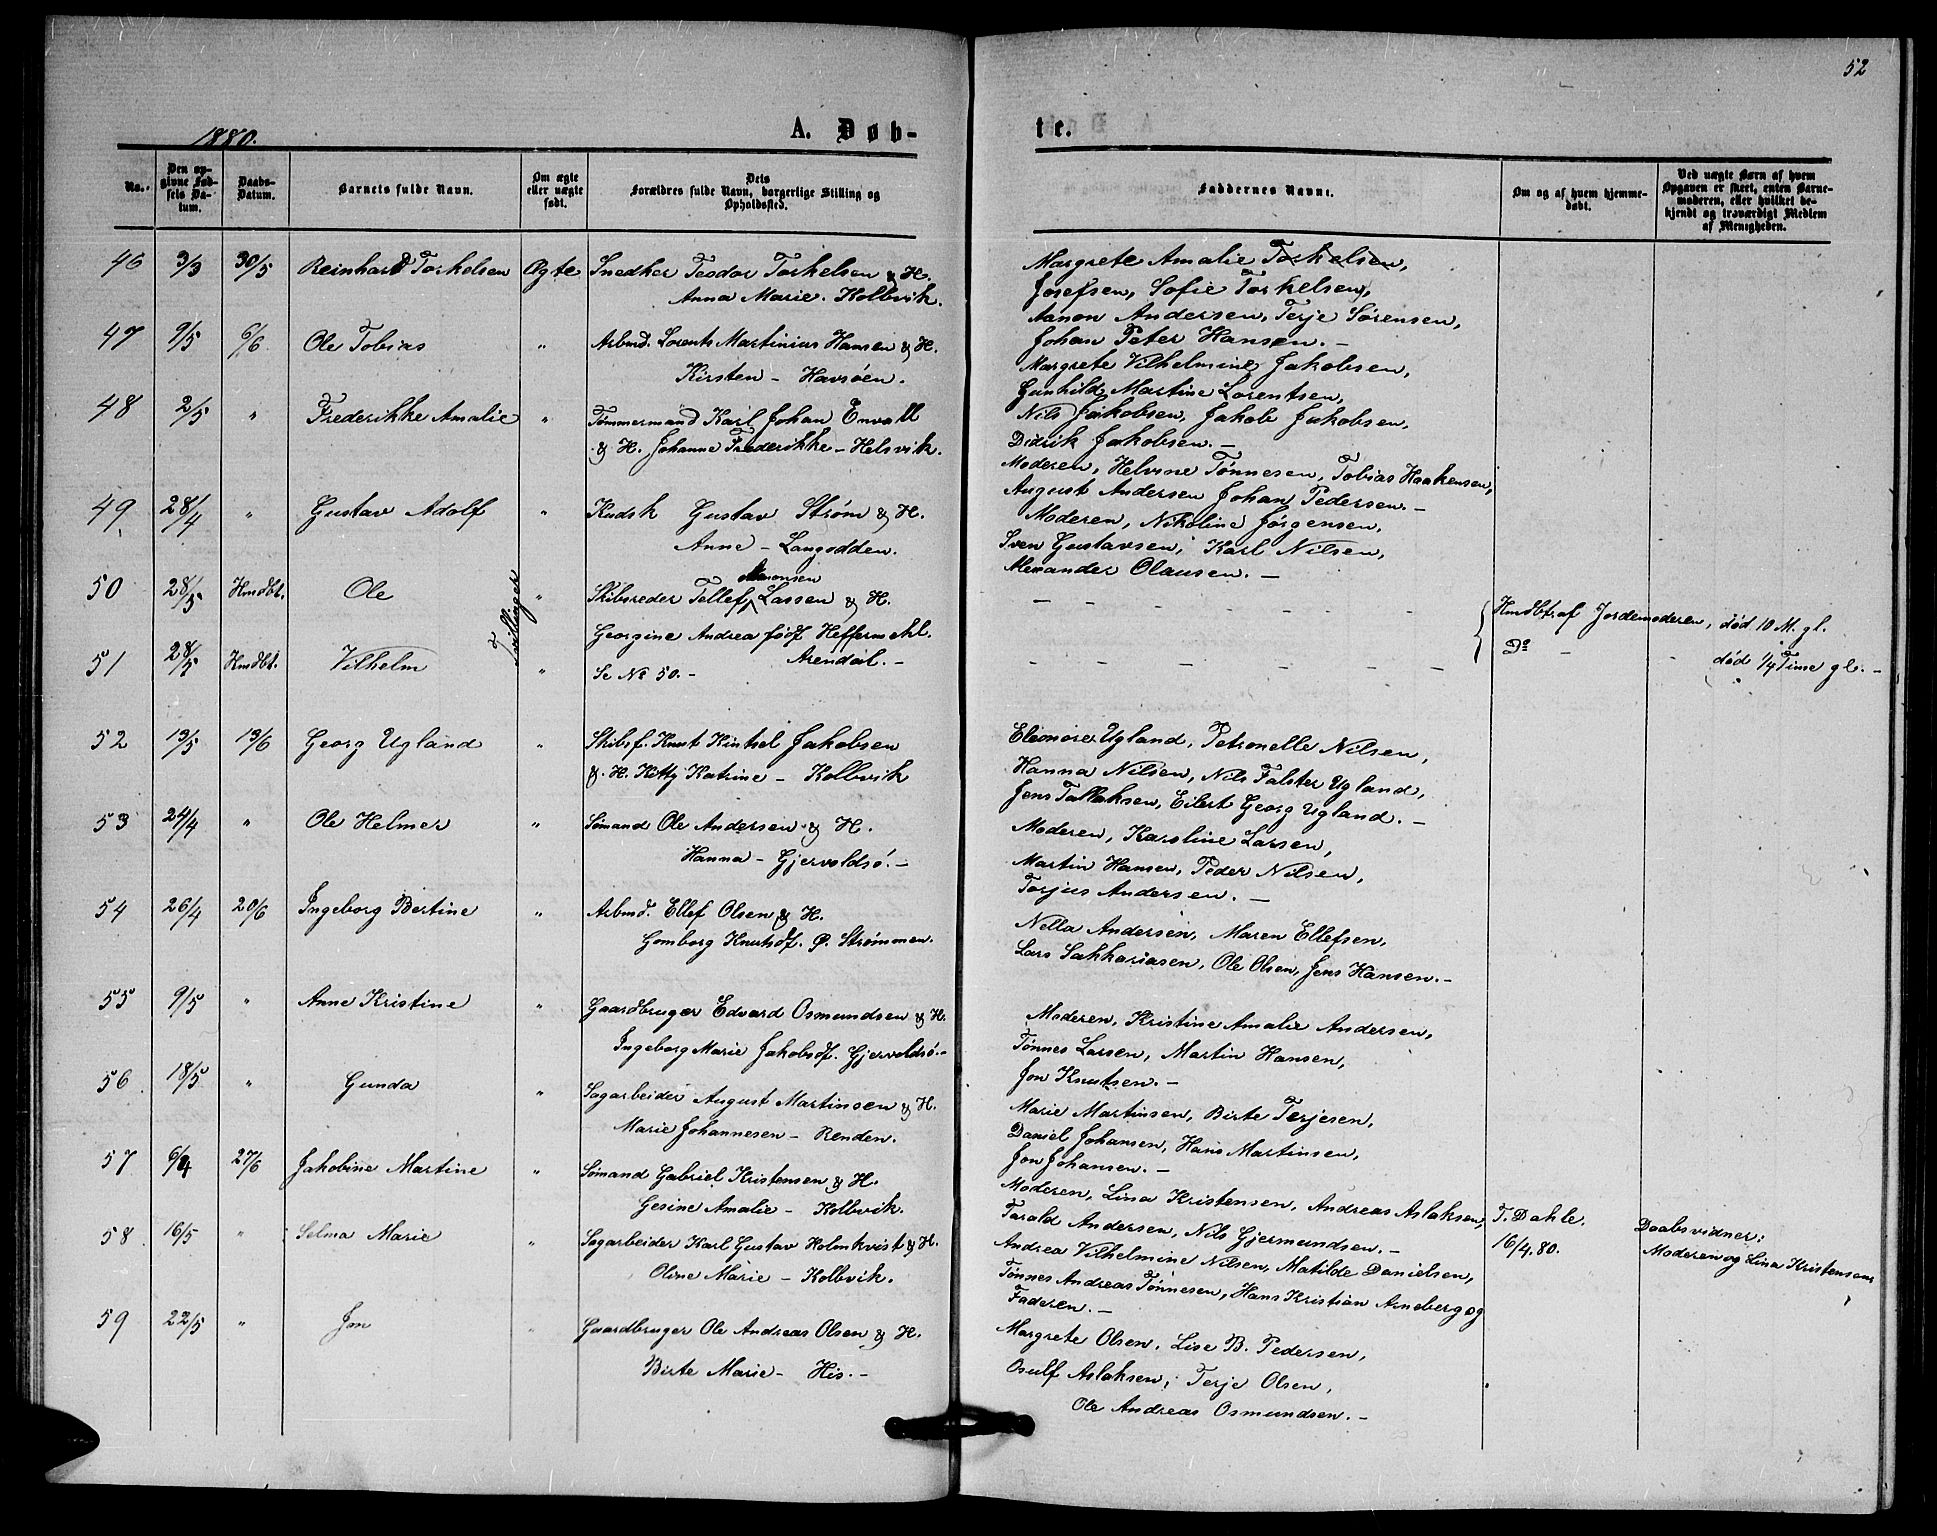 52
1880.
A. Døb-
te.
No.
Den op-
givne Fød-
sels Da-
tum.
Daabs-
Datum.
Barnets fulde Navn.
Om ægte
eller uægte
født.
Dets
Forældres fulde Navn, borgerlige Stilling og
Opholdssted.
Faddernes Navne.
Om og af hvem hjemme-
døbt.
Ved uægte Børn af hvem
Opgaven er skeet, enten Barne-
moderen, eller hvilket be-
kjendt og troværdigt Medlem
af Menigheden.
46 3/3 30/5 Reinhard Torkelsen Ægte Snedker Teodor Torkelsen & H.
Anna Marie. Kolbvik.
Margrete Amalie Torkelsen,
Josefsen, Sofie Torkelsen,
Aanon Andersen, Terje Sørensen,
Johan Peter Hansen. —
47 9/5 6/6 Ole Tobias " Arbmd. Lorents Martinius Hansen & H.
Kirsten – Havsøen.
Margrete Vilhelmine Jakobsen,
Gunhild Martine Lorentsen,
Nils Jakobsen, Jakob Jakobsen,
Didrik Jakobsen. —
48 2/5 " Frederikke Amalie " Tømmermand Karl Johan Envall
& H. Johanne Frederikke – Helsvik.
Moderen, Helvine Tønnesen, Tobias Haakensen,
August Andersen Johan Pedersen. —
49 28/4 " Gustav Adolf " Kudsk Gustav Strøm & H.
Anne – Langodden.
Moderen, Nikoline Jörgensen,
Sven Gustavsen, Karl Nilsen,
Alexander Olausen. —
50 28/5 Hmdbt. Ole Tvillinger " Skibsreder Tellef Aanonsen Lassen & H.
Georgine Andrea født Heffermehl.
Arendal. —
Hmdbt. af Jordemoderen, død 10 M. gl.
51 28/5 Hmdbt. Vilhelm " Se No 50. –
Do – død 1/4 Time gl. —
52 13/5 13/6 Georg Ugland " Skibsf. Knut Kintsel Jakobsen
& H. Kitty Katrine – Kolbvik
Eleonore Ugland, Petronelle Nilsen,
Hanna Nilsen, Nils Falster Ugland,
Jens Tallaksen, Eilert Georg Ugland. —
53 24/4 " Ole Helmer " Sømand Ole Andersen & H.
Hanna – Gjervoldsö. —
Moderen, Karoline Larsen,
Martin Hansen, Peder Nilsen,
Torjus Andersen. —
54 26/4 20/6 Ingeborg Bertine " Arbmd. Ellef Olsen & H.
Gomborg Knutsdt. Ø. Strømmen.
Nella Andersen, Maren Ellefsen,
Lars Sakkariasen, Ole Olsen, Jens Hansen. —
55 9/5 " Anne Kristine " Gaardbruger Edvard Osmundsen & H.
Ingeborg Marie Jakobsdt. Gjervoldsö. —
Moderen, Kristine Amalie Andersen,
Tønnes Larsen, Martin Hansen,
Jon Knutsen. —
56 18/5 " Gunda " Sagarbeider August Martinsen & H.
Marie Johannesen – Renden.
Marie Martinsen, Birte Terjesen,
Daniel Johansen, Hans Martinsen,
Jon Johansen. —
57 6/4 27/6 Jakobine Martine " Sømand Gabriel Kristensen & H.
Gesine Amalie – Kolbvik.
Moderen, Lina Kristensen, Andreas Aslaksen,
Tarald Andersen, Nils Gjermundsen. —
T. Dahle.
16/4.80.
Daabsvidner:
Moderen og Lina Kristensen
58 16/5 " Selma Marie " Sagarbeider Karl Gustav Holmkvist & H.
Oline Marie – Kolbvik.
Andrea Vilhelmine Nilsen, Matilde Danielsen,
Tønnes Andreas Tønnesen, Hans Kristian Arneberg og
Faderen. —
59 22/5 " Jon " Gaardbruger Ole Andreas Olsen & H.
Birte Marie – His. —
Margrete Olsen, Lise B. Pedersen,
Osulf Aslaksen, Terje Olsen,
Ole Andreas Osmundsen. —